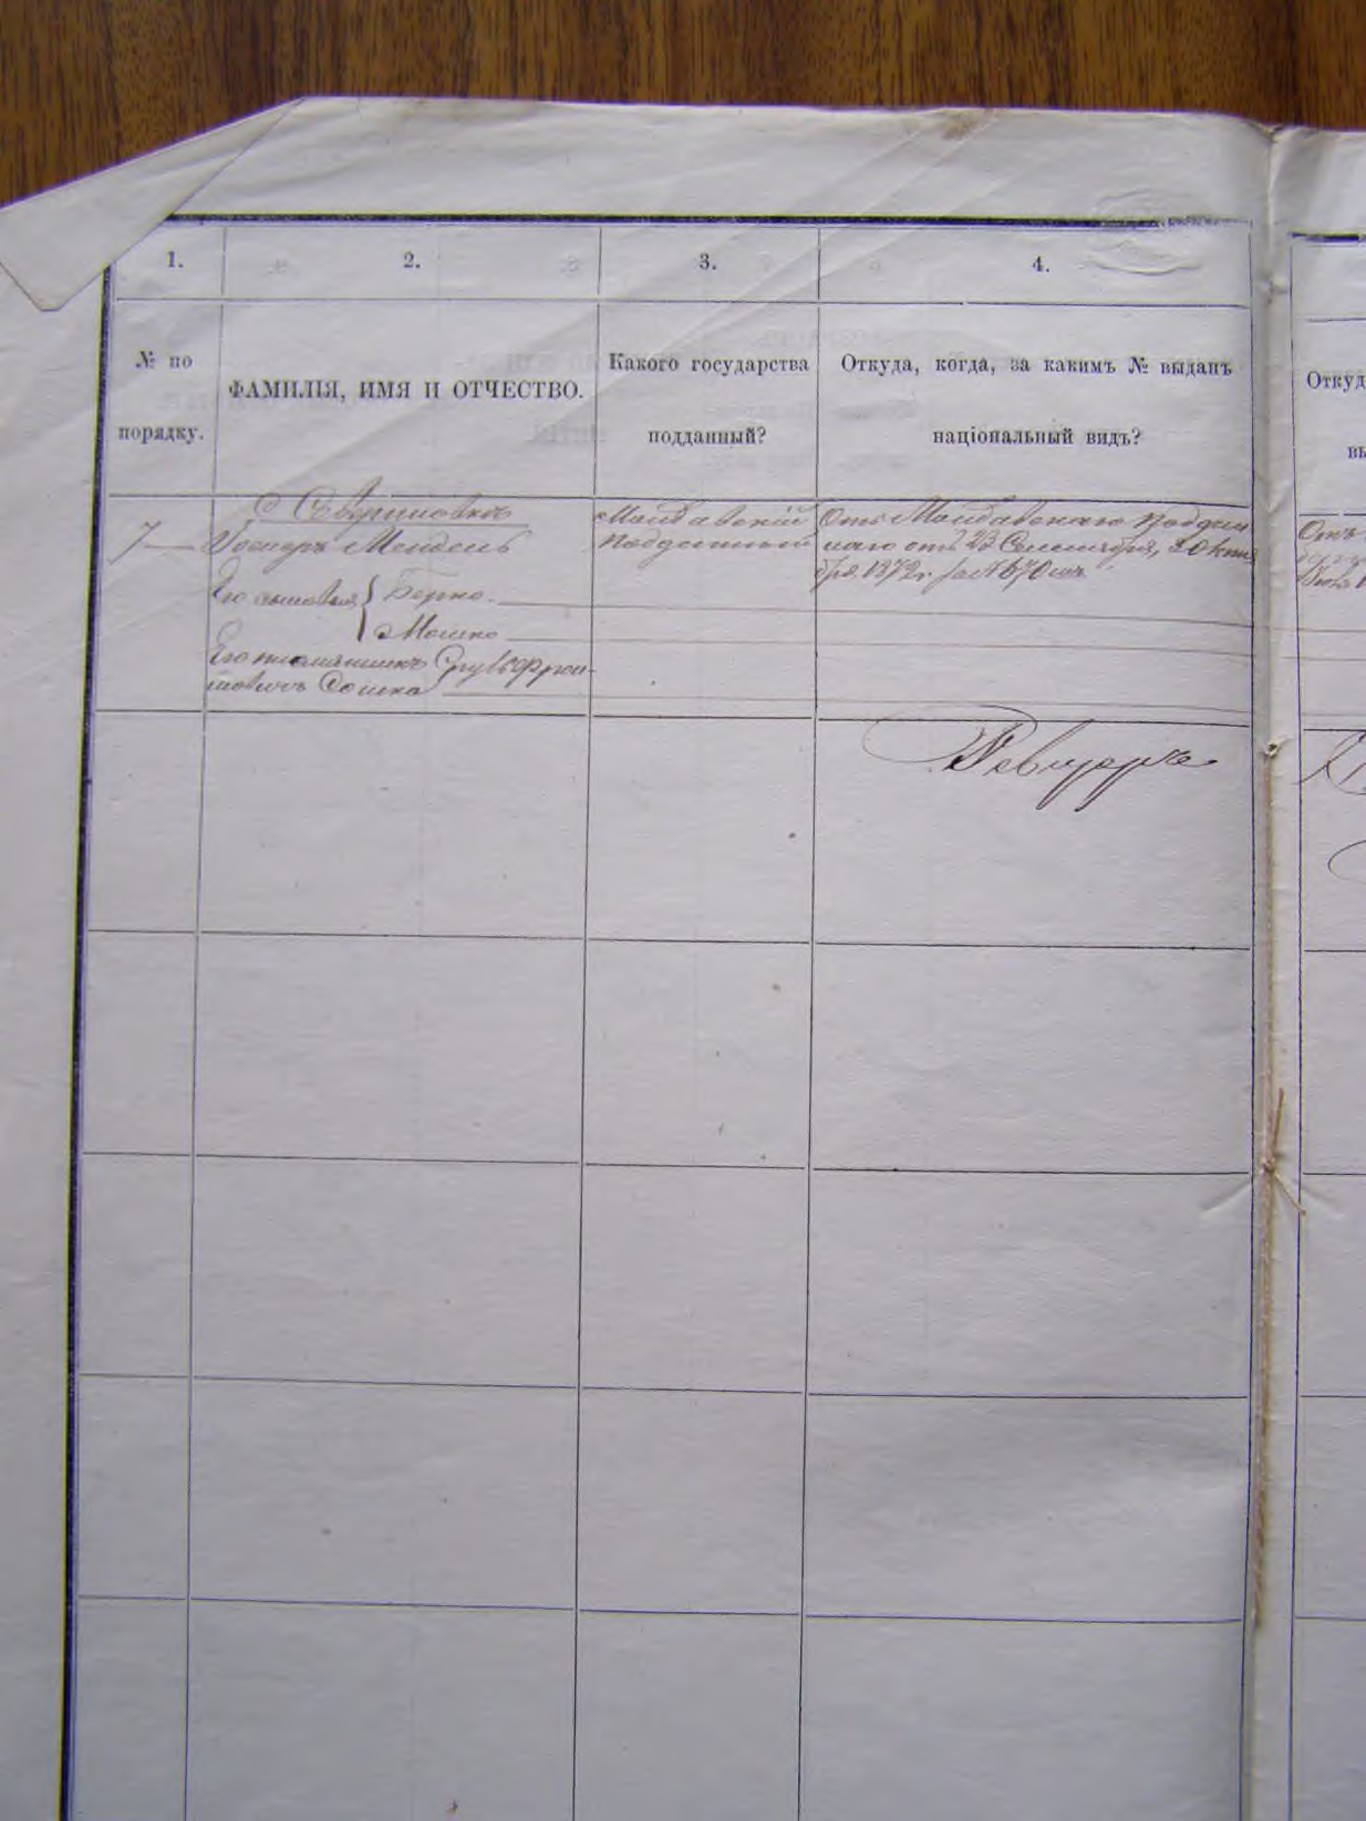 1.
2.
3.
4.
№ по
порядку.
ФАМИЛІЯ, ИМЯ И ОТЧЕСТВО.
Какого государства
подданный?
Откуда, когда, за какимъ № выданъ
національный видъ?
Откуд
вы
7
Мендель
Его сыновья { Берко
Мошко
Его племянникъ
Молдавскій
Подданный
Отъ Молдавскаго
отъ 23 Сентября,
бря 1872 г. за № 670
Отъ